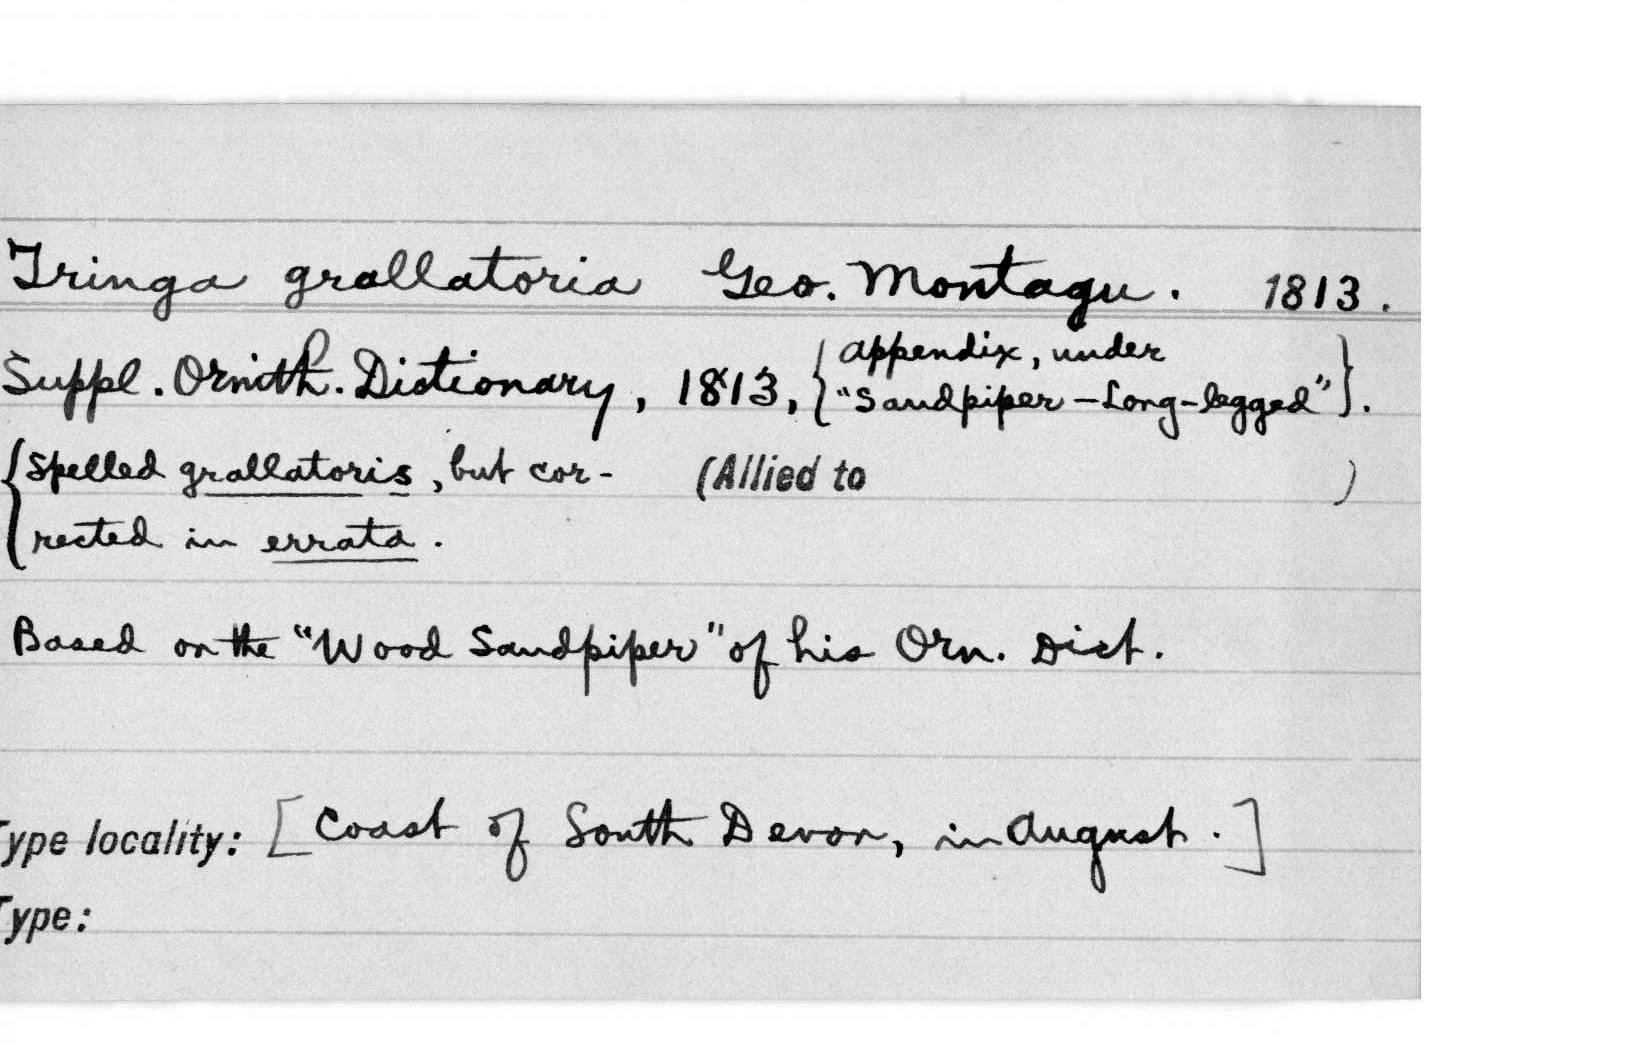 Tringa grallatoria Geo. Montagu. 1813.
Suppl. Ornith. Dictionary, 1813, { appendix, under
"Sandpiper - Long-legged" }.
{ Spelled grallatoris, but cor- (Allied to )
rected in errata.
Based on the "Wood Sandpiper" of his Orn. Dict.
Type locality: [Coast of South Devon, in August.]
Type: